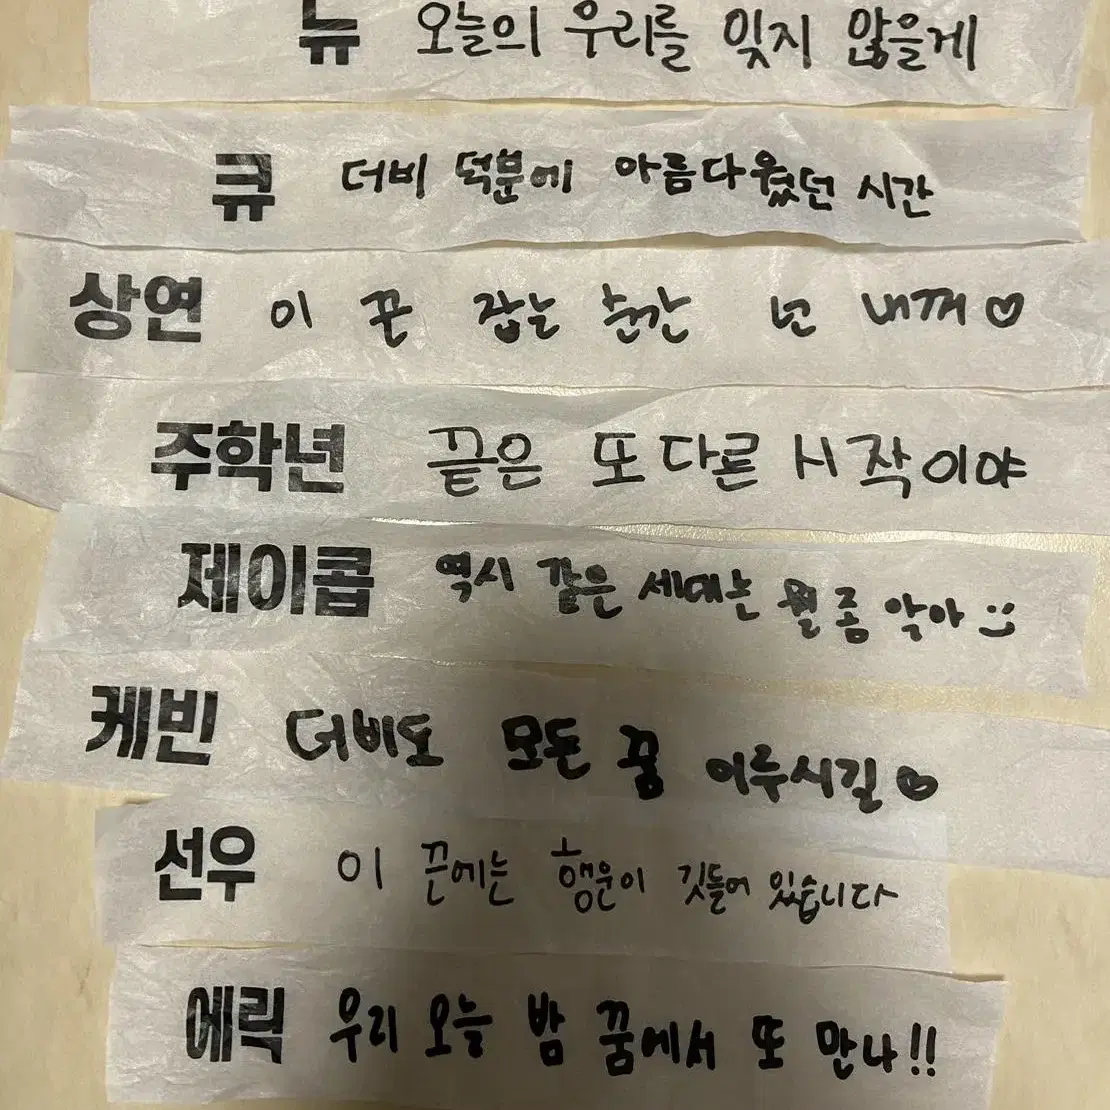 뉴 오늘의 우리를 잊지 않을게
큐 더비 덕분에 아름다웠던 시간
상연 이 끈 잡는 순간 넌 내꺼♡
주학년 끝은 또 다른 시작이야
제이콥 역시 같은 세대는 뭘 좀 알아
케빈 더비도 모든 꿈 이루시길♡
선우 이 끈에는 행운이 깃들어 있습니다
에릭 우리 오늘 밤 꿈에서 또 만나!!